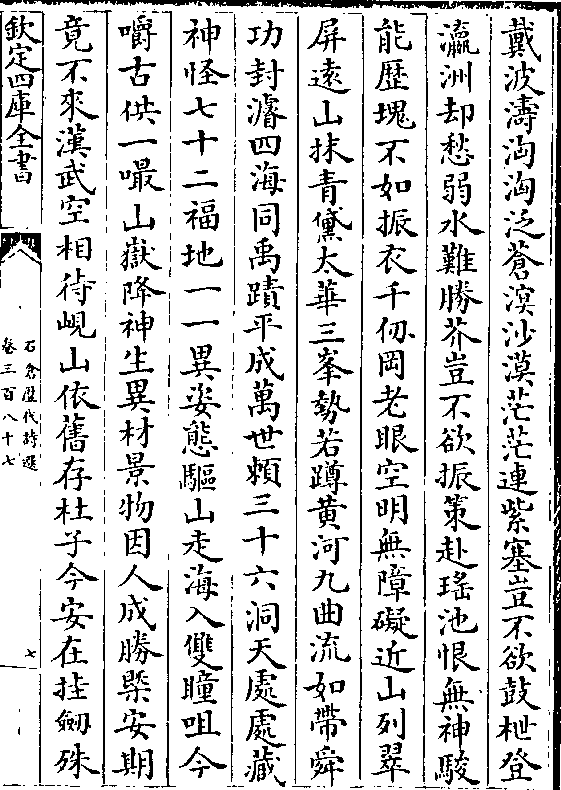 戴波濤淘淘泛蒼溟沙漠茫茫連紫塞豈不欲鼓枻登
瀛洲却愁弱水難勝芥豈不欲振策赴瑤池恨無神駿
能歴塊不如振衣千仭岡老眼空明無障礙近山列翠
屏逺山抹青黛太華三峯勢若蹲黄河九曲流如帶舜
功封濬四海同禹蹟平成萬世頼三十六洞天處處藏
神怪七十二福地一一異姿態驅山走海入雙瞳咀今
嚼古供一嘬山嶽降神生異材景物因人成勝槩安期
竟不來漢武空相待峴山依舊存杜子今安在挂劒殊
欽定四庫全書
石倉歴代詩選
卷三百八十七
七